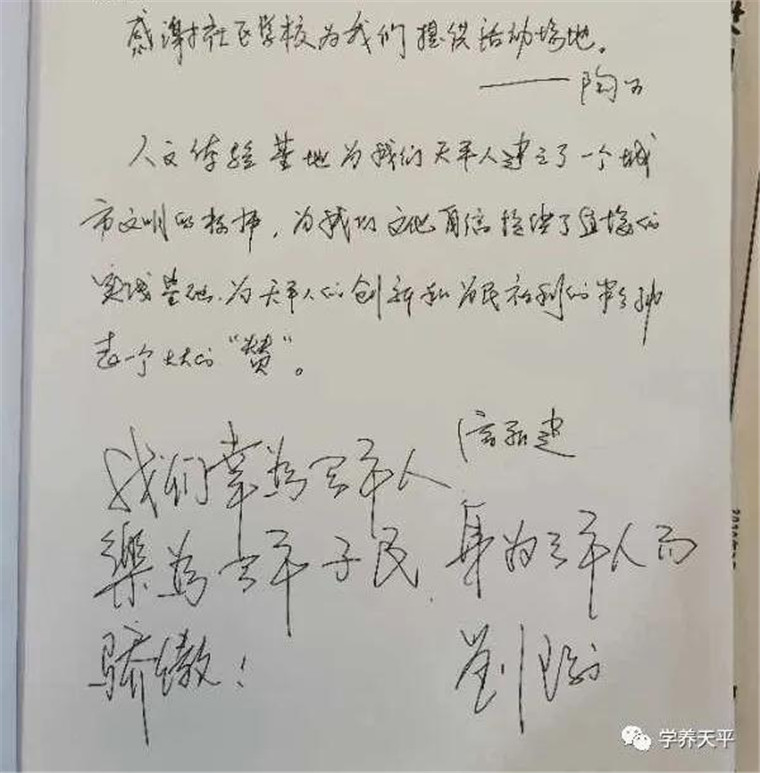 感谢社区学校为我们提供活动场地。
——陶
人文体验基地为我们天平人建立了一个城
市文明的标杆，为我们文化自信提供了直接的
实践基础。为天平人的创新和为民福利的精神
点一个大大的“赞”。
我们幸为天平人
樂為天平子民，身为天平人而
骄傲！
学养天平